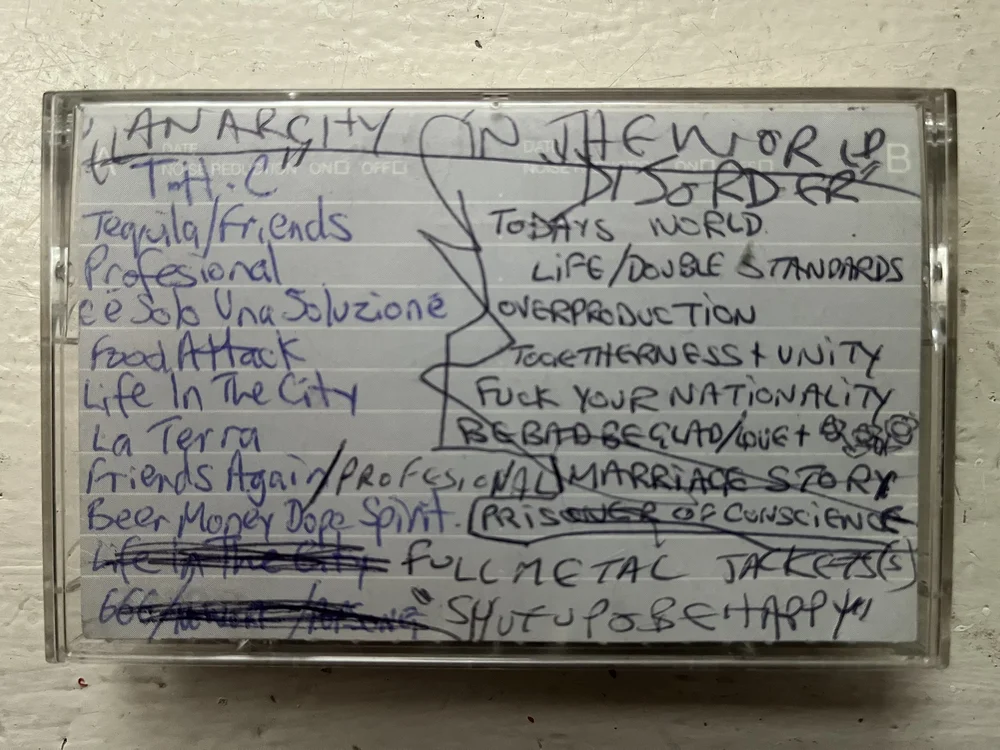 "ANARCHY IN THE WORLD
A DATE DATE B
NOISE REDUCTION ON OFF NOISE ON OFF
T.H.C" DISORDER"
Tequila/Friends
Profesional
c'e Solo Una Soluzione
Food Attack
Life In The City
La Terra
Friends Again/PROFESIONAL
Beer Money Dope Spirit.
Life In The City
666/
TODAYS WORLD.
LIFE/DOUBLE STANDARDS
OVERPRODUCTION
TOGETHERNESS + UNITY
FUCK YOUR NATIONALITY
BE BAD BE GLAD/LOVE +
MARRIAGE STORY
PRISONER OF CONSCIENCE
FULL METAL JACKETS(S)
"SHUT UP & BE HAPPY"